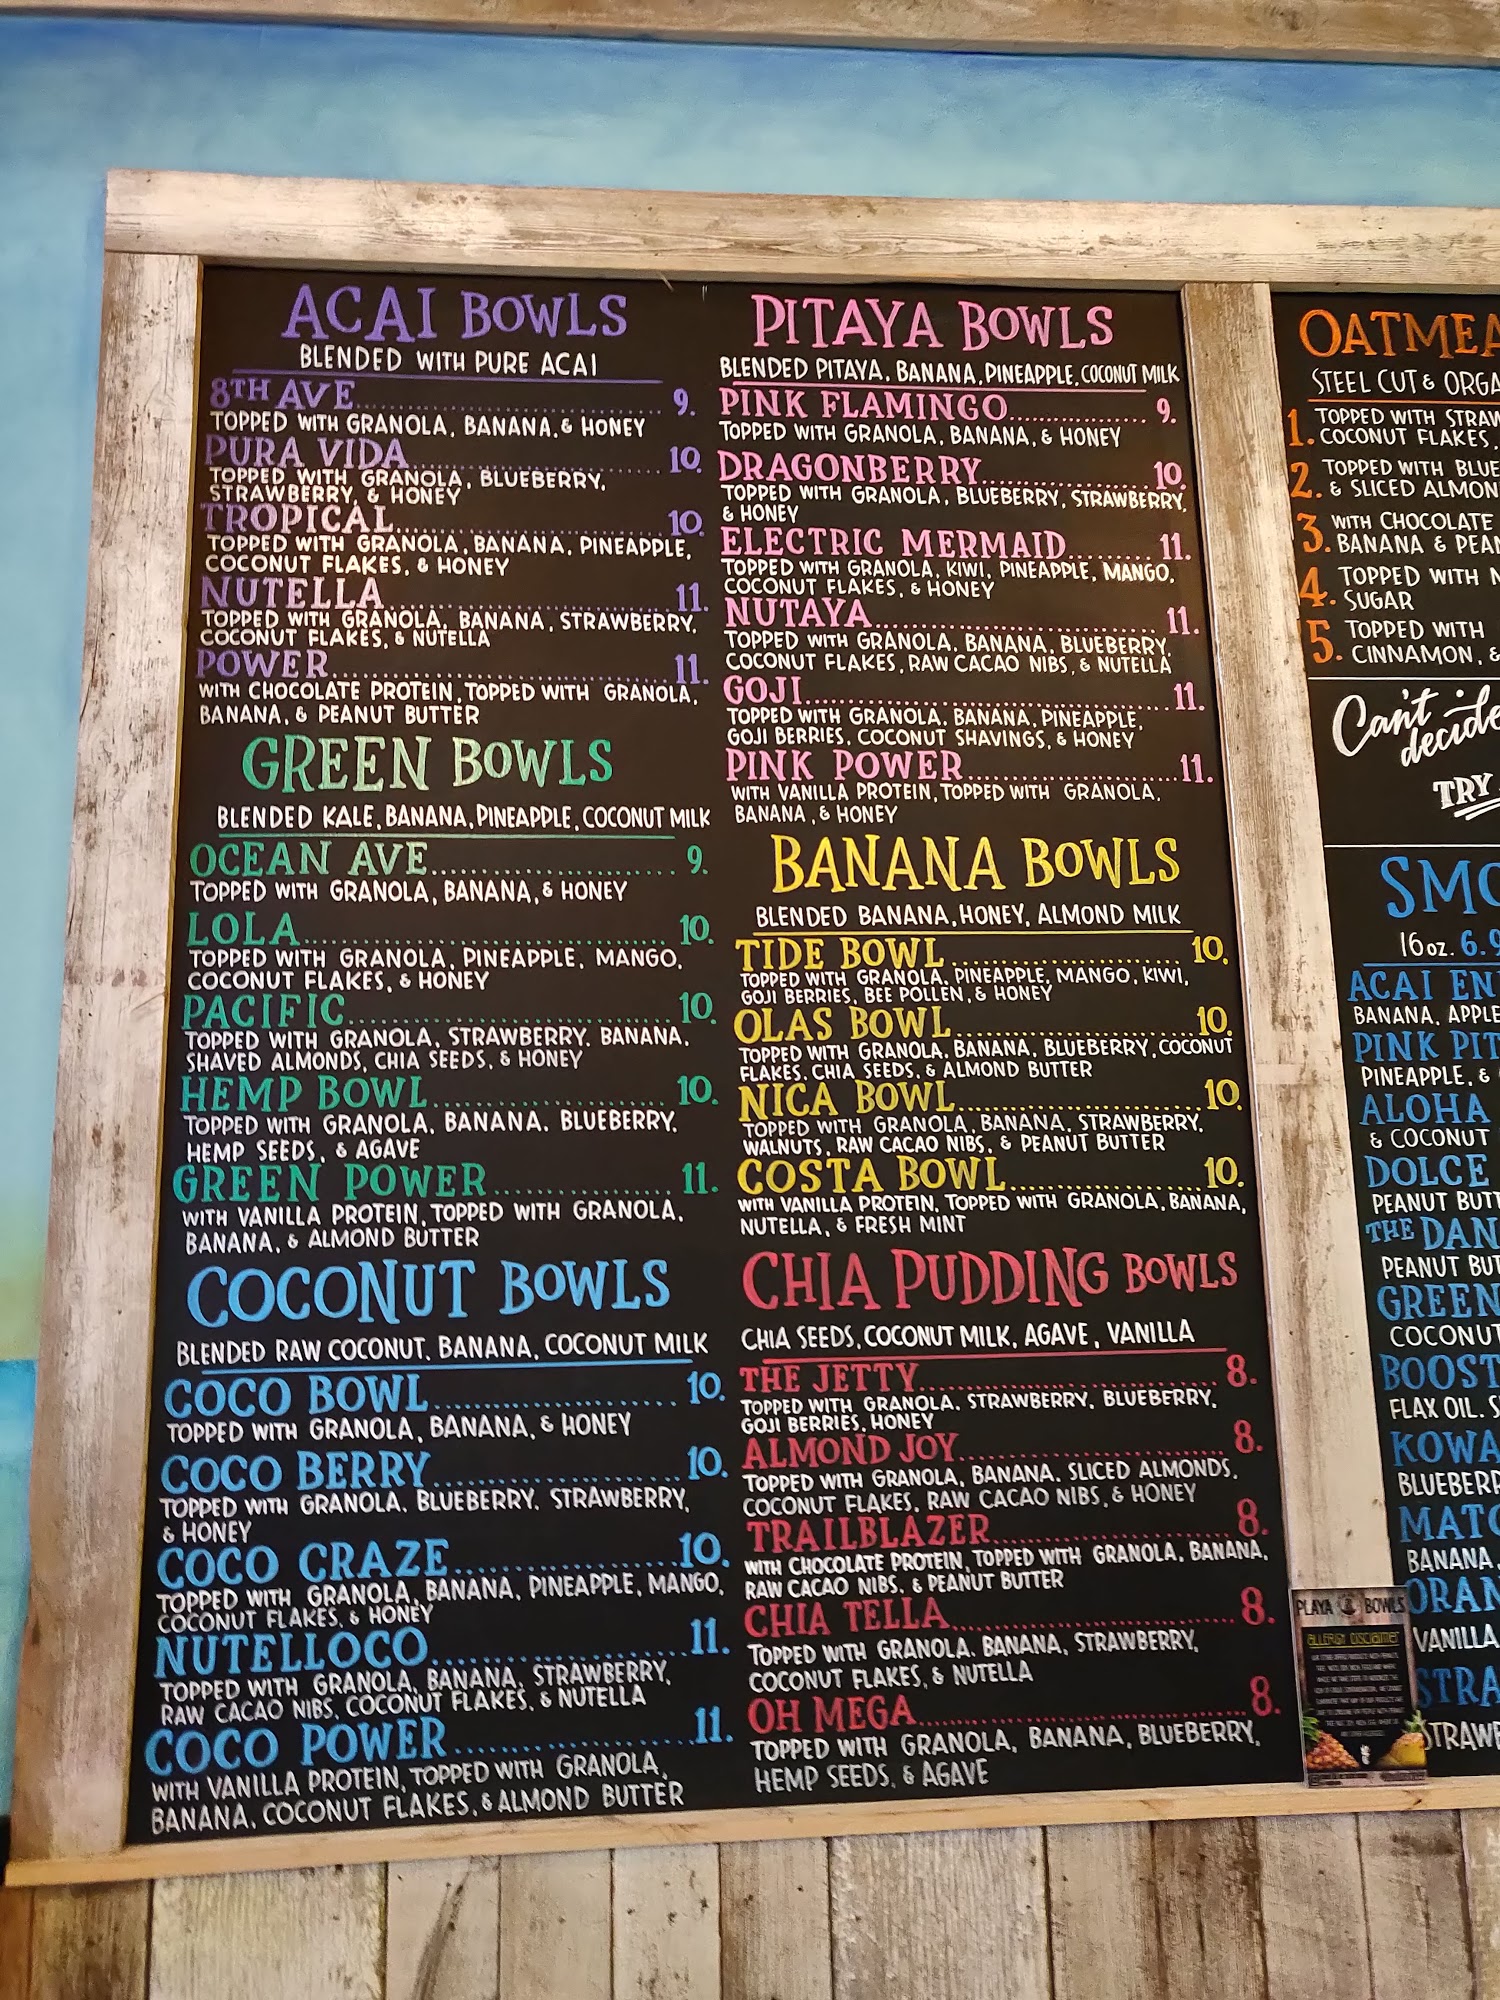 ACAI BOWLS
BLENDED WITH PURE ACAI
8TH AVE 9.
TOPPED WITH GRANOLA, BANANA, & HONEY
PURA VIDA 10.
TOPPED WITH GRANOLA, BLUEBERRY,
STRAWBERRY, & HONEY
TROPICAL 10.
TOPPED WITH GRANOLA, BANANA, PINEAPPLE,
COCONUT FLAKES, & HONEY
NUTELLA 11.
TOPPED WITH GRANOLA, BANANA, STRAWBERRY,
COCONUT FLAKES, & NUTELLA
POWER 11.
WITH CHOCOLATE PROTEIN, TOPPED WITH GRANOLA,
BANANA, & PEANUT BUTTER
GREEN BOWLS
BLENDED KALE, BANANA, PINEAPPLE, COCONUT MILK
OCEAN AVE 9.
TOPPED WITH GRANOLA, BANANA, & HONEY
LOLA 10.
TOPPED WITH GRANOLA, PINEAPPLE, MANGO,
COCONUT FLAKES, & HONEY
PACIFIC 10.
TOPPED WITH GRANOLA, STRAWBERRY, BANANA,
SHAVED ALMONDS, CHIA SEEDS, & HONEY
HEMP BOWL 10.
TOPPED WITH GRANOLA, BANANA, BLUEBERRY,
HEMP SEEDS, & AGAVE
GREEN POWER 11.
WITH VANILLA PROTEIN, TOPPED WITH GRANOLA,
BANANA, & ALMOND BUTTER
COCONUT BOWLS
BLENDED RAW COCONUT, BANANA, COCONUT MILK
COCO BOWL 10.
TOPPED WITH GRANOLA, BANANA, & HONEY
COCO BERRY 10.
TOPPED WITH GRANOLA, BLUEBERRY, STRAWBERRY,
& HONEY
COCO CRAZE 10.
TOPPED WITH GRANOLA, BANANA, PINEAPPLE, MANGO,
COCONUT FLAKES, & HONEY
NUTELLOCO 11.
TOPPED WITH GRANOLA, BANANA, STRAWBERRY,
RAW CACAO NIBS, COCONUT FLAKES, & NUTELLA
COCO POWER 11.
WITH VANILLA PROTEIN, TOPPED WITH GRANOLA,
BANANA, COCONUT FLAKES, & ALMOND BUTTER
PITAYA BOWLS
BLENDED PITAYA, BANANA, PINEAPPLE, COCONUT MILK
PINK FLAMINGO 9.
TOPPED WITH GRANOLA, BANANA, & HONEY
DRAGONBERRY 10.
TOPPED WITH GRANOLA, BLUEBERRY, STRAWBERRY,
& HONEY
ELECTRIC MERMAID 11.
TOPPED WITH GRANOLA, KIWI, PINEAPPLE, MANGO,
COCONUT FLAKES, & HONEY
NUTAYA 11.
TOPPED WITH GRANOLA, BANANA, BLUEBERRY,
COCONUT FLAKES, RAW CACAO NIBS, & NUTELLA
GOJI 11.
TOPPED WITH GRANOLA, BANANA, PINEAPPLE,
GOJI BERRIES, COCONUT SHAVINGS, & HONEY
PINK POWER 11.
WITH VANILLA PROTEIN, TOPPED WITH GRANOLA,
BANANA, & HONEY
BANANA BOWLS
BLENDED BANANA, HONEY, ALMOND MILK
TIDE BOWL 10.
TOPPED WITH GRANOLA, PINEAPPLE, MANGO, KIWI,
GOJI BERRIES, BEE POLLEN, & HONEY
OLAS BOWL 10.
TOPPED WITH GRANOLA, BANANA, BLUEBERRY, COCONUT
FLAKES, CHIA SEEDS, & ALMOND BUTTER
NICA BOWL 10.
TOPPED WITH GRANOLA, BANANA, STRAWBERRY,
WALNUTS, RAW CACAO NIBS, & PEANUT BUTTER
COSTA BOWL 10.
WITH VANILLA PROTEIN, TOPPED WITH GRANOLA, BANANA,
NUTELLA, & FRESH MINT
CHIA PUDDING BOWLS
CHIA SEEDS, COCONUT MILK, AGAVE, VANILLA
THE JETTY 8.
TOPPED WITH GRANOLA, STRAWBERRY, BLUEBERRY,
GOJI BERRIES, HONEY
ALMOND JOY 8.
TOPPED WITH GRANOLA, BANANA, SLICED ALMONDS,
COCONUT FLAKES, RAW CACAO NIBS, & HONEY
TRAILBLAZER 8.
WITH CHOCOLATE PROTEIN, TOPPED WITH GRANOLA, BANANA,
RAW CACAO NIBS, & PEANUT BUTTER
CHIA TELLA 8.
TOPPED WITH GRANOLA, BANANA, STRAWBERRY,
COCONUT FLAKES, & NUTELLA
OH MEGA 8.
TOPPED WITH GRANOLA, BANANA, BLUEBERRY,
HEMP SEEDS, & AGAVE
OATMEA
STEEL CUT & ORGA
1. TOPPED WITH STRAW
COCONUT FLAKES,
2. TOPPED WITH BLUE
& SLICED ALMON
3. WITH CHOCOLATE
BANANA & PEAN
4. TOPPED WITH
SUGAR
5. TOPPED WITH
CINNAMON, &
Can't decide
TRY
SMO
16oz. 6.9
ACAI EN
BANANA, APPLE
PINK PIT
PINEAPPLE, &
ALOHA
& COCONUT
DOLCE
PEANUT BUTT
THE DAN
PEANUT BUT
GREEN
COCONUT
BOOST
FLAX OIL, S
KOWA
BLUEBERR
MATC
BANANA,
ORAN
VANILLA
STRA
STRAWB
PLAYA BOWLS
ALLERGY DISCLAIMER